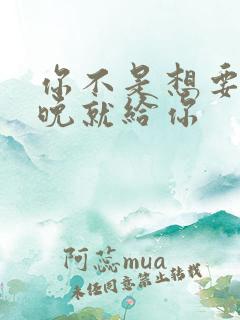 你不是想要
晚就给你
阿蕊mua
未经同意禁止转载